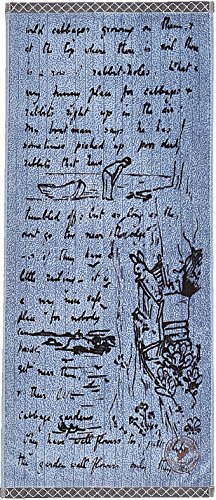 wild cabbages growing on them;
at the top where there is soil there
is a row of rabbit-holes. What a
very funny place for cabbages &
rabbits right up in the air!
My boatman says he has
sometimes picked up poor dead
rabbits that have
tumbled off; but as long as they
dont go too near the edge
they have
little railing
a very safe
place for nobody
can
get near
their
cabbage garden
They have wall flowers in
the garden wall flowers only